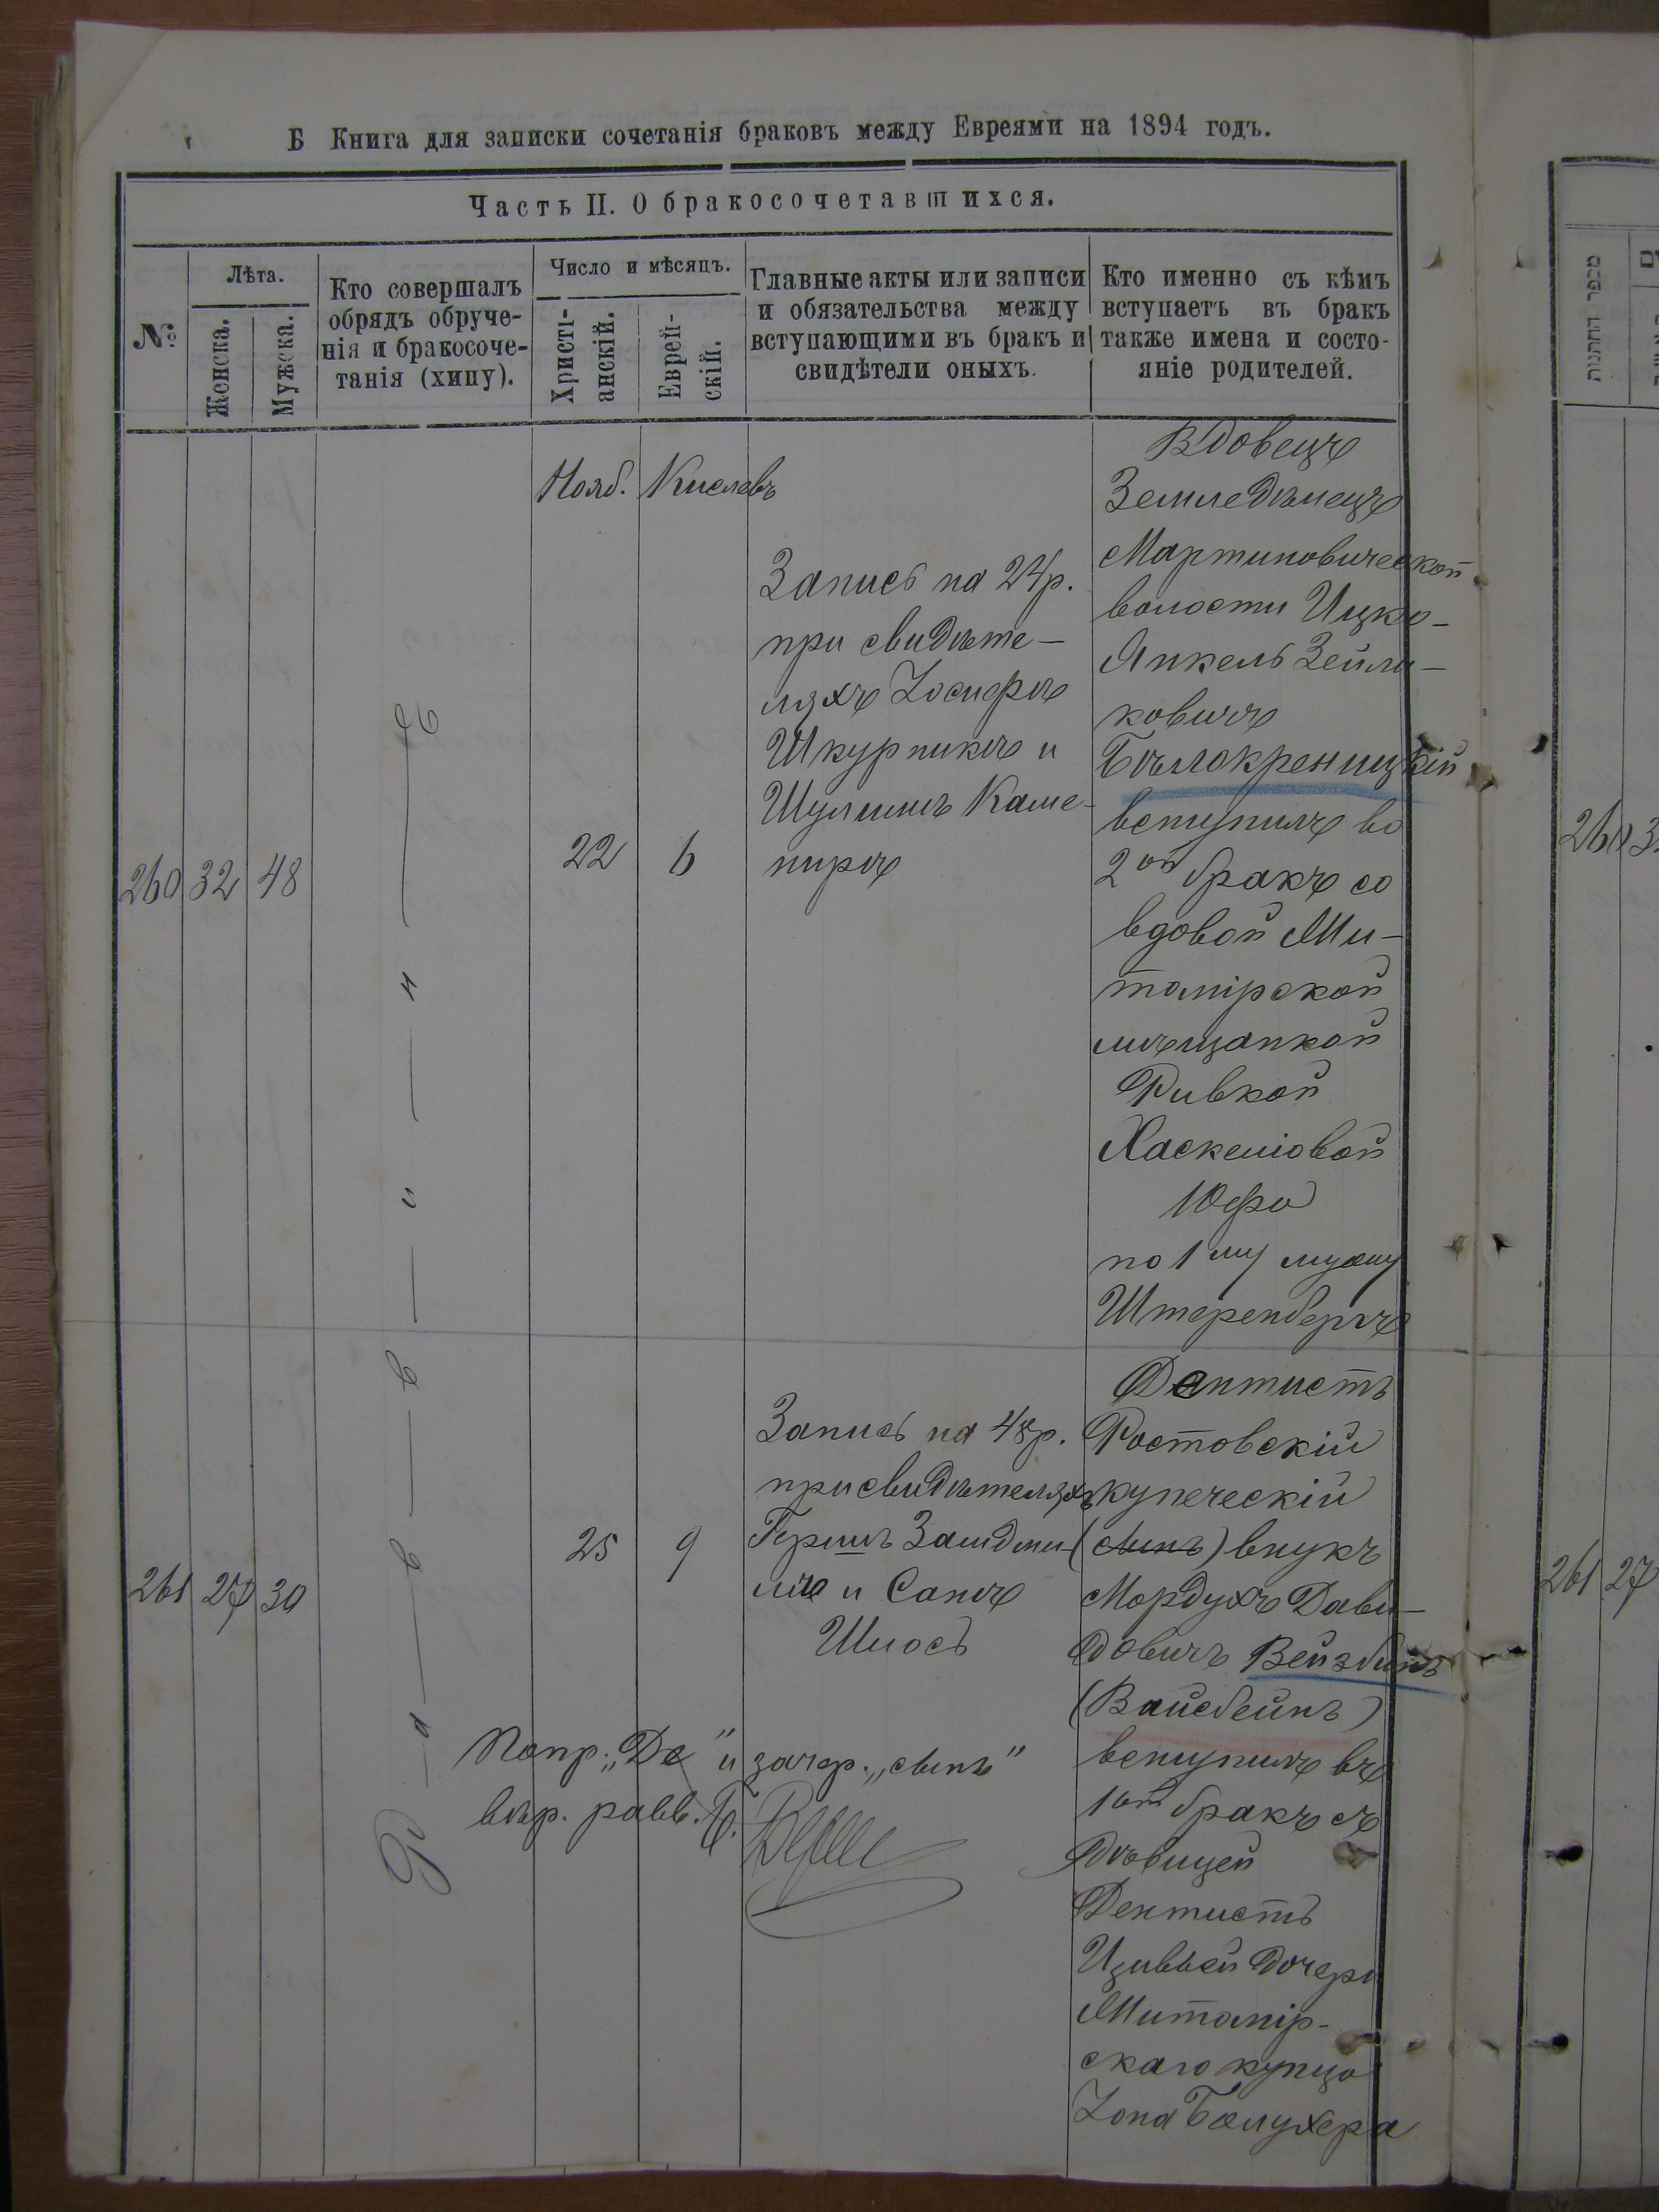 Б Книга для записки сочетанія браковъ между Евреями на 1894 годъ.
Часть II. О бракосочетавшихся.
№
Лѣта.
Женска.
Мужска.
Кто совершалъ
обрядъ обруче-
нія и бракосоче-
танія (хипу).
Число и мѣсяцъ.
Христі-
анскій.
Еврей-
скій.
Главные акты или записи
и обязательства между
вступающими въ бракъ и
свидѣтели оныхъ.
Кто именно съ кѣмъ
вступаетъ въ бракъ
также имена и состо-
яніе родителей.
מספר החתונות
260
32
48
Нояб.
22
Кислевъ
6
Запись на 24р.
при свидѣте-
ляхъ Іосифъ
Шкурникъ и
Шулимъ Каме-
ниръ
Вдовецъ
Земледѣлецъ
Мартиновической
волости Ицко-
Янкель Зейли-
ковичъ
Бѣлокреницкій
вступилъ во
2ой бракъ со
вдовой Жи-
томірской
мѣщанкой
Ривкой
Хаскеліовой
Юфа
по 1му мужу
Штеренбергъ
261
27
30
25
9
Запись на 48р.
при свидѣтеляхъ
Гершъ Зайдми-
и Саня
Шлосъ
Дантистъ
Ростовскій
купеческій
(сынъ) внукъ
Мордухъ Дави-
довичъ Вейзбинъ
(Вайсбейнъ)
вступилъ въ
1ой бракъ съ
дѣвицей
Дентистъ
Цивьей дочери
Житомір-
скаго купца
Іона Балухера
Попр. „Де" и зачер. „сынъ"
вѣр. равв.
260
261
27